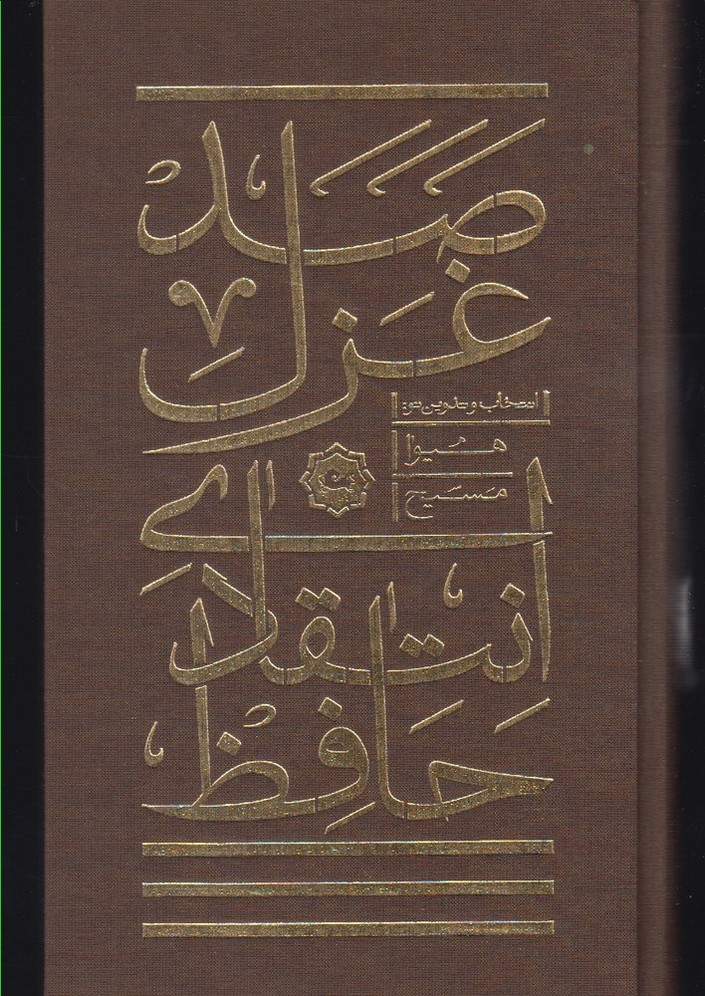 صد
غزل
انتخاب و تدوین:
هیوا
مسیح
انتقادی
حافظ